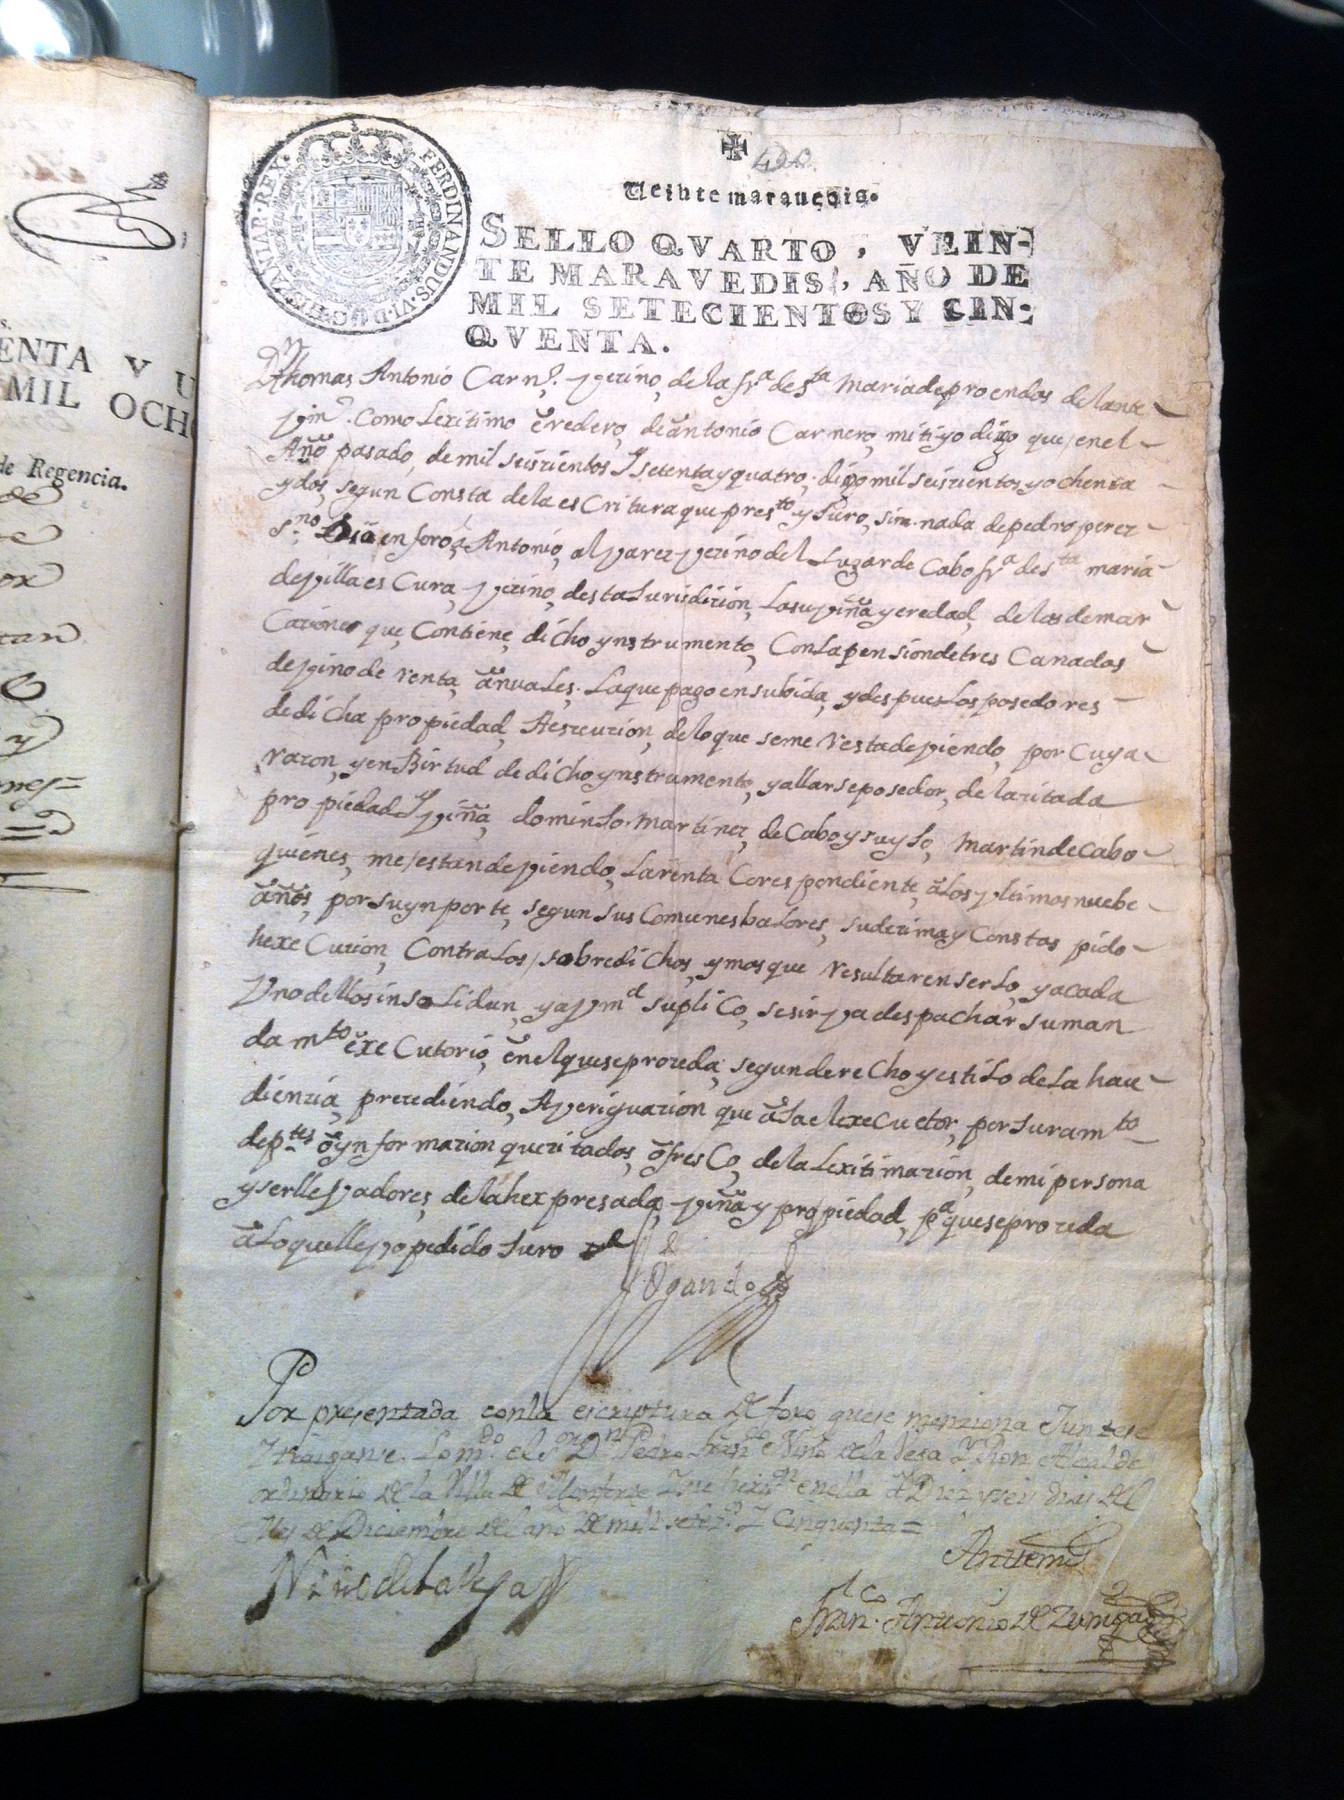 HISPANIAR·REX·
FERDINANDUS·VI·D·G·
400
Veinte marauedis.
SELLO QVARTO, VEIN-
TE MARAVEDIS, AÑO DE
MIL SETECIENTOS Y CIN-
QVENTA.
Dn Thomas Antonio Carno. vezino, de la fra de sta Maria de proendos delante
vm. Como Lexitimo eredero, de antonio Carnero, mi tiyo digo que, en el
Año pasado, de mil seiszientos y setenta y quatro, digo mil seiszientos y ochenta
y dos, segun Consta de la esCritura que presto y Juro, sino nada de pedro perez
sno. Dió en foro, a Antonio, albarez vezino del Lugar de Cabo fra de sta maria
de villaesCura, vezino, desta Jurisdizión, La su viña y eredad, de las demar
Caziones que, Contiene, dicho ynstrumento, Con La pensión de tres Canados
de vino de Renta, anuales. La que pago en su bida, y despues Los posedores
de dicha propiedad, A esceuzión, de lo que se me Resta deviendo, por Cuya
Razon, y en Birtud de dicho ynstrumento, y allarse posedor, de la zitada
propiedad y viña, domingo Martinez, de Cabo y su yJo, Martin de Cabo
quienes, me, estan deviendo, La renta Corespondiente, a Los vltimos nuebe
años, por su ynporte, segun sus Comunes balores, su dezima y Constas pido
hexeCuzión, Contra Los, sobredichos, y mas que Resultaren serlo, y a cada
Vno dellos insolidun, y a vmd supliCo, se sirva despachar su man
damto exeCutorio, en el que se prozeda, segun derecho y estilo de La hau
dienzia, prezediendo, Averiguazion que a La el exeCuctor, por Juramto
de ptes o ynformazion que zitados, ofresCo, de la Lexitimazión, de mi persona
y ser llevadores, de la hexpresada, viña y propiedad, pa que se prozeda
a Lo que llevo pedido Juro &
Ogando
Por presentada con la escriptura de foro que se menziona Juntese
y traigase. Lo mdo. el sor Dn Pedro Franco Niño de la Vega y Alcalde
ordinario de la Villa de Monforte y en ella a Diez y seis dias del
Mes de Diciembre del año de mill setezos. y Cinquenta=
Niño de la Vega
Antemi
Franco. Antonio de Zuniga
ENTA Y U
MIL OCHO
de Regencia.